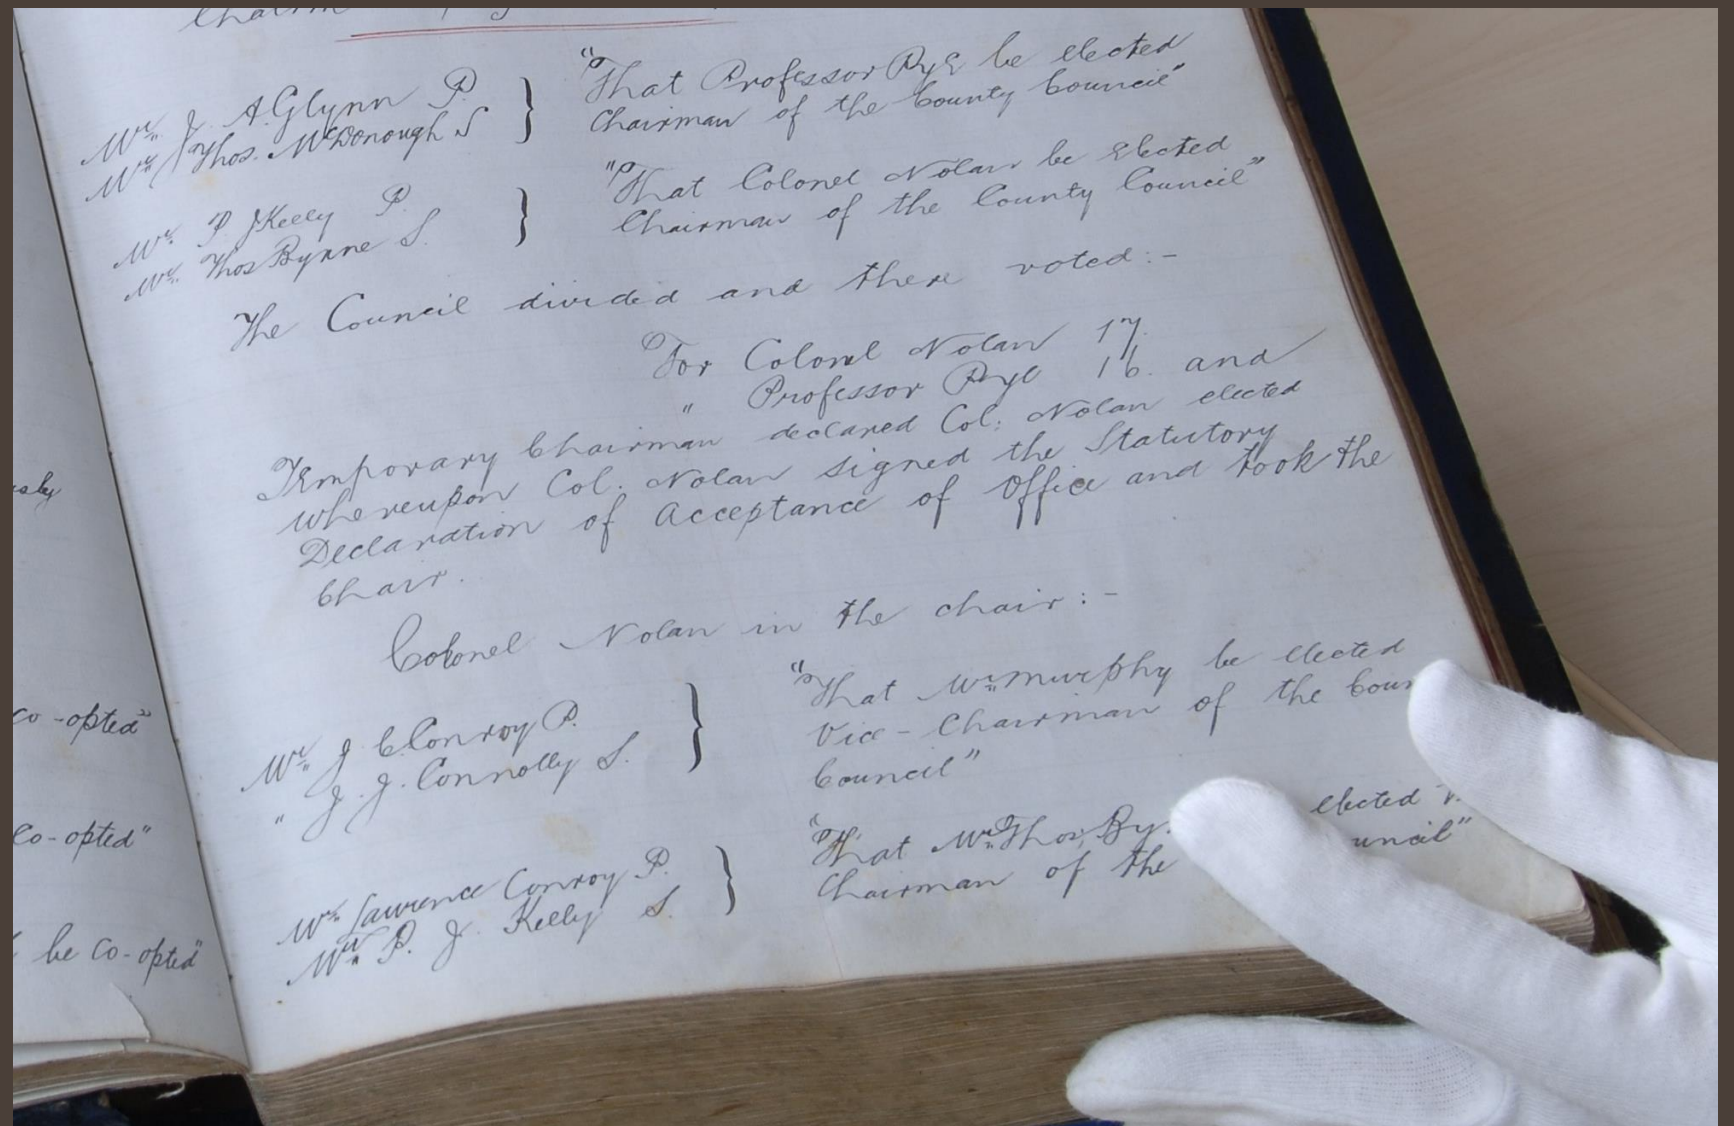 Mr. J. A. Glynn P.
Mr. Thos. McDonough S
"That Professor Rye be elected
Chairman of the County Council"
Mr. P J Kelly P.
Mr. Thos Byrne S.
"That Colonel Nolan be elected
Chairman of the County Council"
The Council divided and there voted:-
For Colonel Nolan 17.
" Professor Rye 16. and
Temporary Chairman declared Col: Nolan elected
whereupon Col. Nolan signed the Statutory
Declaration of Acceptance of Office and took the
Chair.
Colonel Nolan in the chair:-
Mr. J C. Conroy P.
" J. J. Connolly S.
"That Mr. Murphy be elected
Vice-Chairman of the
Council"
Mr. Lawrence Conroy P.
Mr. P. J. Kelly S.
"That Mr. Thos. elected
Chairman of the
co-opted"
Co-opted"
be Co-opted"